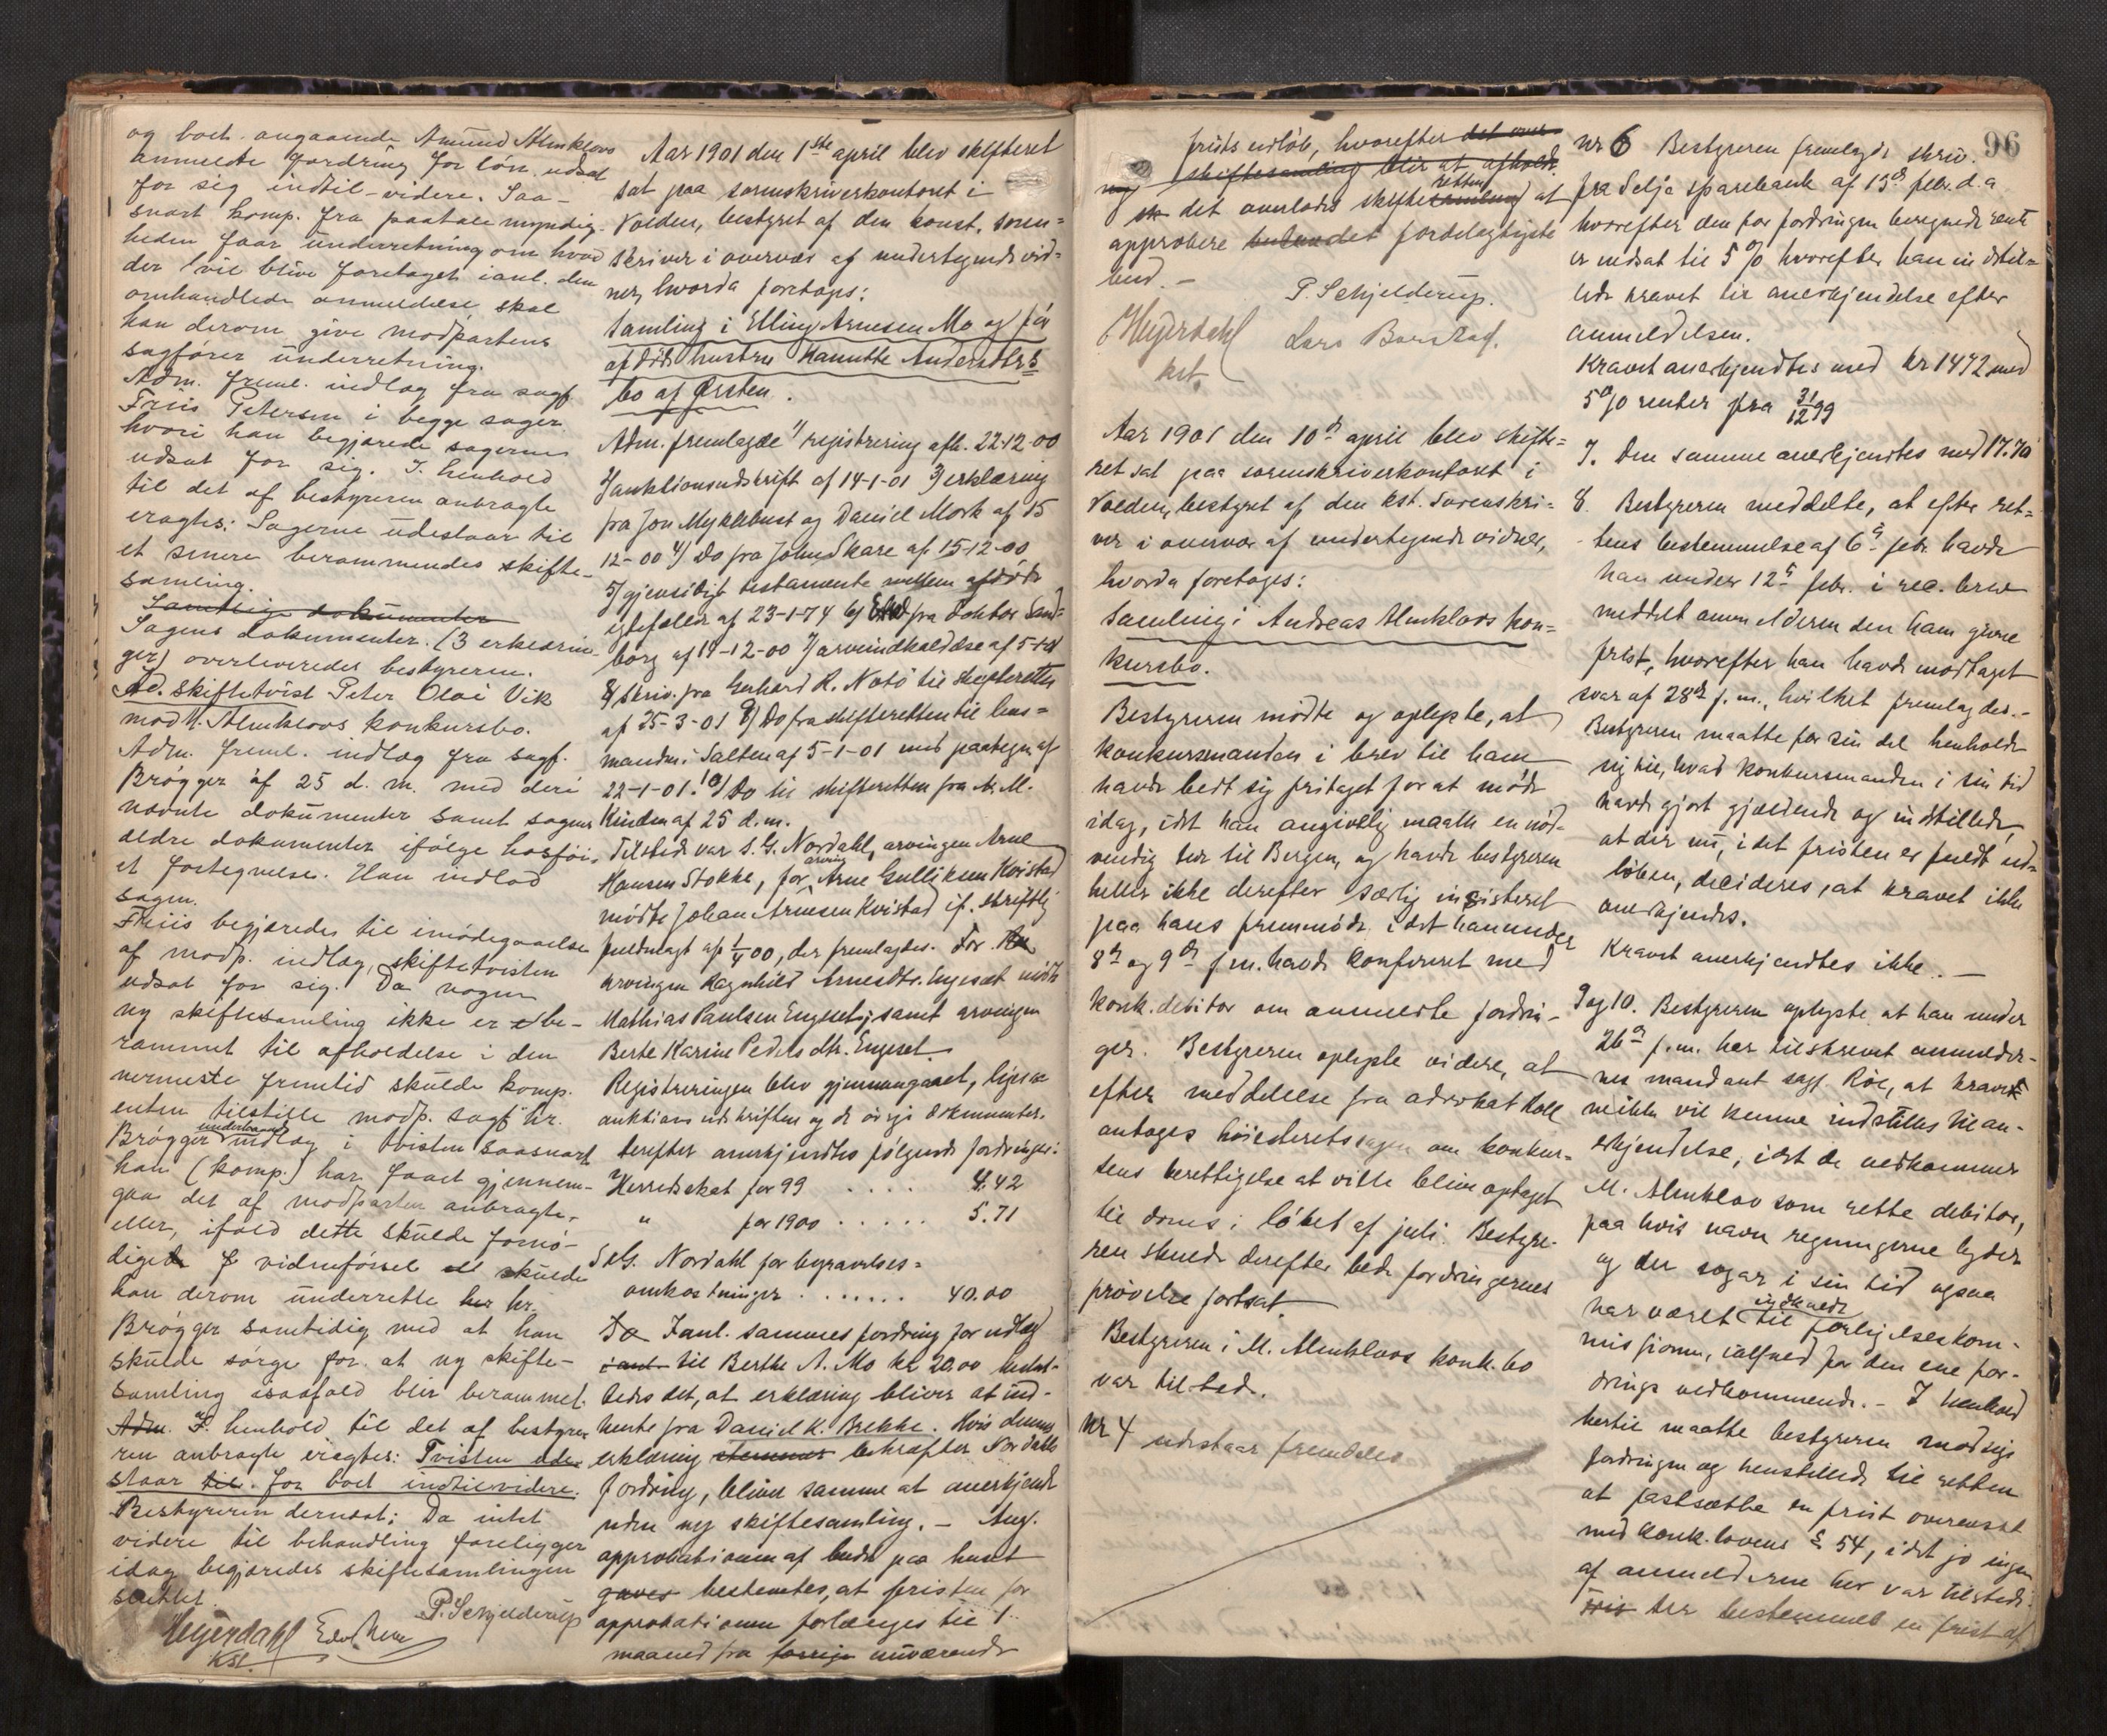 og boet angaaende Amund Almklovs
anmeldte fordring for lön udsat
for sig indtil-videre. Saa-
snart komp. fra paatalemyndig-
heden faar ünderretning om hvad
der vil blive foretaget i anl. den
omhandlede anmeldelse skal
han derom give modpartens
sagförer ünderretning.
Adm. freml. indlæg fra sagf.
Friis Petersen i begge sager
hvori han begjærede sagerne
udsat for sig. I henhold
til det af bestyreren anbragte
eragtes: Sagerne üdestaar til
et senere berammendes skifte-
samling.
Samtlige dokumenter
Sagens dokumenter (3 erklærin-
ger) overleveredes bestyreren.
Ad. skiftetvist Peter Olai Vik
mod M. Almklovs konkursbo.
Adm. freml. indlæg fra sagf.
Brögger af 25 d. m. med deri
nævnte dokümenter samt sagens
ældre dokumenter ifölge hosföi-
et fortegnelse. Han indlod
sagen.
Friis begjæredes til imödegaaelse
af modp. indlæg, skiftetvisten
udsat for sig. Da nogen
ny skiftesamling ikke er be-
rammet til afholdelse i den
nærmeste fremtid skulde komp.
enten tilstille modp. sagf. hr.
Brögger underhaand indlæg i tvisten saasnart
han (komp.) har faaet gjennem-
gaa det af modparten anbragte,
eller, ifald dette skulde fornö-
diget vidneförsel skulde
han derom ünderrette hr.
Brögger samtidig med at han
skulde sörge for at ny skifte-
samling isaafald blir berammet.
Adm. I henhold til det af bestyre-
ren anbragte eragtes: Tvisten ude-
staar til for boet indtilvidere.
Bestyreren dernæst: Da intet
videre til behandling foreligger
idag begjæredes skiftesamlingen
sluttet.
P. Schjelderup
Heyerdahl
kst.
Aar 1901 den 1ste april blev skifteret
sat paa sorenskriverkontoret i
Volden, bestyret af den konst. soren-
skriver i overvær af undertegnede vid-
ner, hvorda foretoges:
Samling i Elling Arnesen Mo og för
afdöde hustru Hanutte Andersdtrs
bo af Örsten.
Adm. fremlagde 1) registrering afh. 22-12-00
2) auktionsudskrift af 14-1-01 3) erklæring
fra Jon Myklebust og Daniel Mork af 15
12-00 4) Do fra John Skare af 15-12-00
5) gjensidigt testamente mellem afdöde
egtefæller af 23-1-74 6) fra doktor Sand-
borg af 19-12-00 7) arveindkaldelse af 5-1-01
8) skriv. fra Gerhard R. Notö til skifteretten
af 25-3-01 9) Do fra skifteretten til lens-
manden i Salten af 5-1-01 med paategn. af
22-1-01. 10) Do til skifteretten fra A. M.
Kinden af 25 d.m.
Tilstede var S. G. Nordahl, arvingen Arne
Hansen Stokke, for arving Arne Gulliksen Kvistad
mödte Johan Arnesen Kvistad if. skriftlig
fuldmagt af 1/4 00, der fremlagdes. For
arvingen Ragnhild Arnesdtr. Engeset mödte
Mathias Paulsen Engeset, samt arvingen
Berte Karine Peders dtr. Engeset.
Registreringen blev gjennemgaaet, ligesaa
auktions udskriften og de övrige dokumenter.
Derefter anerkjendtes fölgende fordringer:
Herredsskat for 99 . . . . . 4.42
" for 1900 . . . . . 5.71
S. G. Nordahl for begravelses-
omkostninger . . . . . . . 40.00
I anl. sammes fordring for udlæg
til Berthe A. Mo kr. 20.00 beslut-
tedes det, at erklæring bliver at ind-
hente fra Daniel K. Brekke. Hvis dennes
erklæring stemmer bekræfter Nordahls
fordring, bliver samme at anerkjende
uden ny skiftesamling. - Ang.
approbationen af budet paa huset
gaves bestemtes, at fristen for
approbationen forlænges til 1
maaned fra forrige nuværende
frists udlöb, hvorefter det over-
ny skiftesamling blir at afholde.
det overlodes skifteretten at
approbere det fordelagtigste
bud. -
P. Schjelderup.
Heyerdahl
kst.
Aar 1901 den 10de april blev skifte-
ret sat paa sorenskriverkontoret i
Volden, bestyret af den kst. sorenskri-
ver i overvær af undertegnede vidner,
hvorda foretoges:
Samling i Andreas Almklovs kon-
kursbo.
Bestyreren mödte og oplyste, at
konkursmanden i brev til ham
havde bedt sig fritaget for at möde
idag, idet han angivelig maatte en nöd-
vendig tur til Bergen, og havde bestyreren
heller ikke derefter særlig insisteret
paa hans fremmöde, idet han under
8de og 9de f.m. havde konfereret med
konk. debitor om anmeldte fordrin-
ger. Bestyreren oplyste videre, at
efter meddelelse fra advokat Roll
antages höiesteretssagen om konkur-
sens berettigelse at ville blive optaget
til doms i löbet af juli. Bestyre-
ren skulde derefter bede fordringernes
prövelse fortsat.
Bestyreren i M. Almklovs konk. bo
var tilstede.
Nr 4 udestaar fremdeles
96
Nr 6 Bestyreren fremlagde skriv.
fra Selje sparebank af 19de febr. d.a
hvorefter den for fordringen beregnede rente
er nedsat til 5 % hvorefter han indstil-
lede kravet til anerkjendelse efter
anmeldelsen.
Kravet anerkjendtes med kr 1472 med
5 % renter fra 31/12 99
7. Den samme anerkjendtes med 17.70
8. Bestyreren meddelte, at efter ret-
tens bestemmelse af 6te febr. havde
han under 12te febr. i rec. brev
meddelt anmelderen den ham givne
frist, hvorefter han havde modtaget
svar af 28de f.m., hvilket fremlagdes. -
Bestyreren maatte for sin del henholde
sig til, hvad konkursmanden i sin tid
havde gjort gjældende og indstillede,
at der nu, idet fristen er fuldt ud-
löben, decideres, at kravet ikke
anerkjendes.
Kravet anerkjendtes ikke. -
9 og 10. Bestyreren oplyste at han under
26de f.m. har tilskrevet anmelder-
nes mandant sagf. Röe, at kravet
ikke vil kunne indstilles til an-
erkjendelse, idet de vedkommer
M. Almklov som rette debitor,
paa hvis navn regningerne lyder
og der sogar i sin tid ogsaa
har været indkaldt til forligelseskom-
missionen, ialfald for den ene for-
drings vedkommende. - I henhold
hertil maatte bestyreren modsige
fordringen og henstillede til retten
at fastsætte en frist overensst.
med konk. lovens § 54, idet jo ingen
af anmelderne her var tilstede.
Der bestemmes en frist af